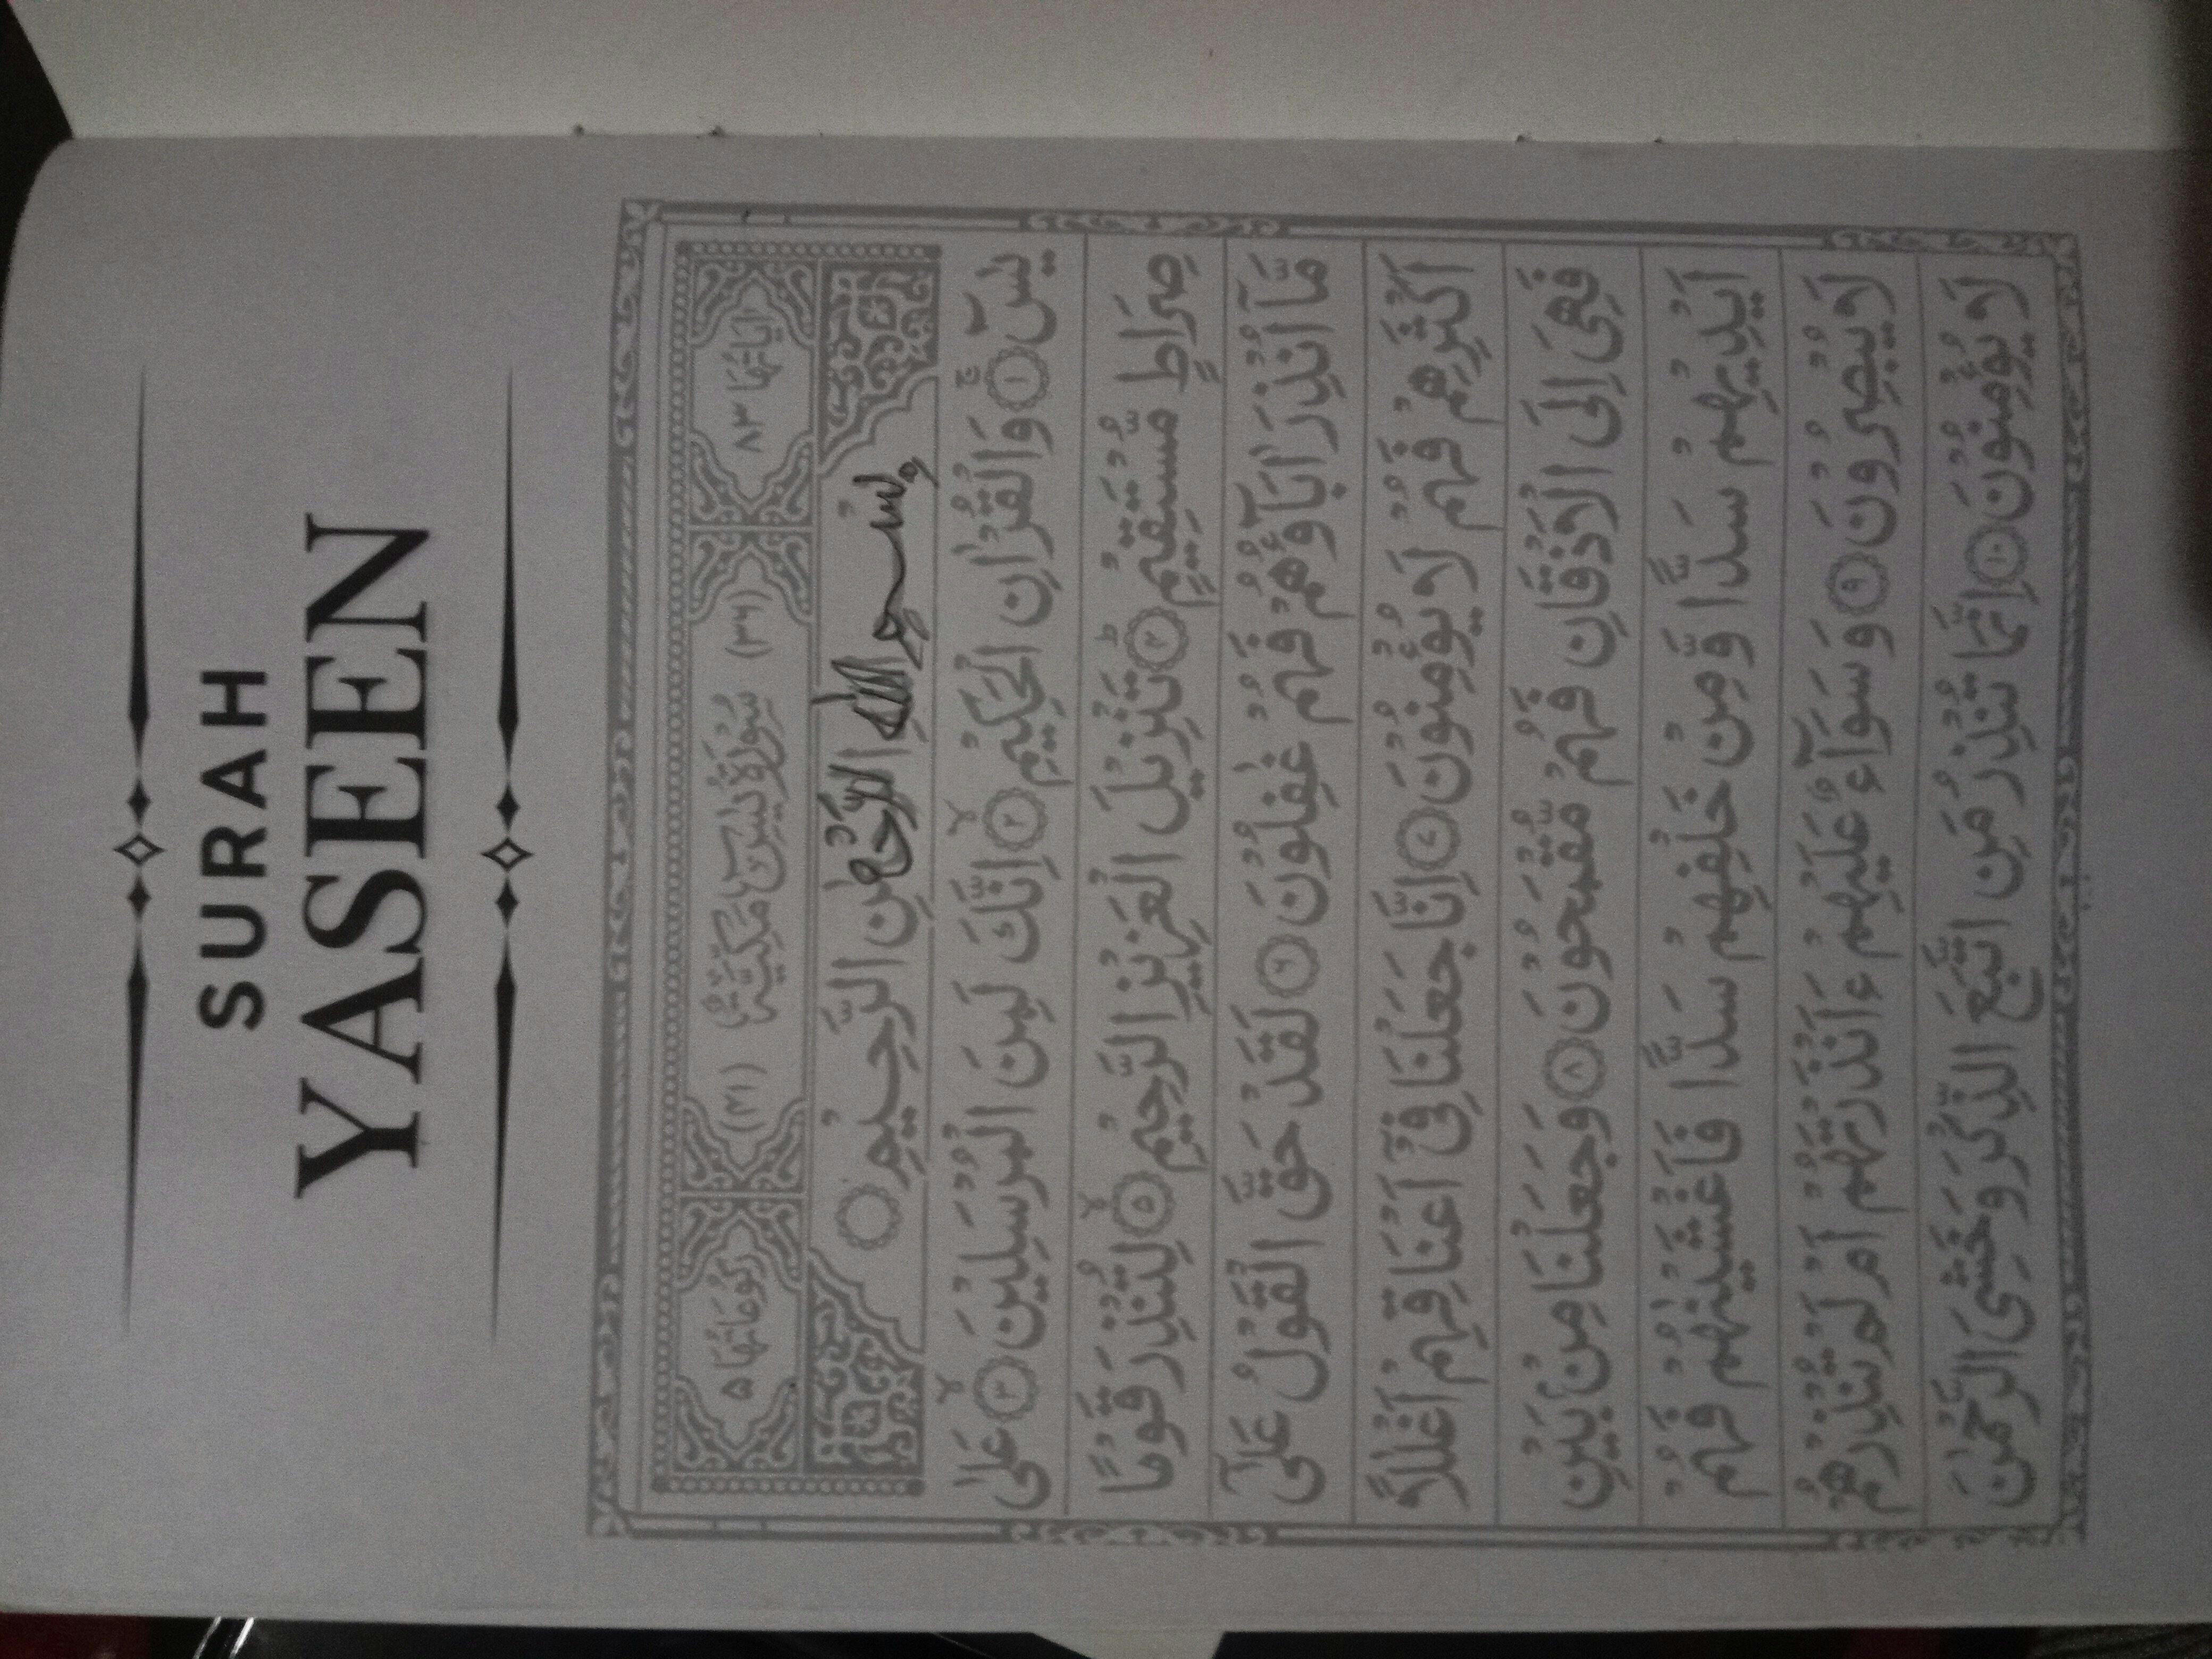 SURAH
YASEEN
اٰيَاتُهَا ٨٣ (٣٦) سُوْرَةُ يٰسٓ مَكِّيَّةٌ (٤١) رُكُوْعَاتُهَا ٥
بِسْمِ اللّٰهِ الرَّحْمٰنِ الرَّحِيْمِ
يٰسٓ ۚ ﴿١﴾ وَالْقُرْاٰنِ الْحَكِيْمِ ۙ ﴿٢﴾ اِنَّكَ لَمِنَ الْمُرْسَلِيْنَ ۙ ﴿٣﴾ عَلٰى
صِرَاطٍ مُّسْتَقِيْمٍ ؕ ﴿٤﴾ تَنْزِيْلَ الْعَزِيْزِ الرَّحِيْمِ ۙ ﴿٥﴾ لِتُنْذِرَ قَوْمًا
مَّاۤ اُنْذِرَ اٰبَآؤُهُمْ فَهُمْ غٰفِلُوْنَ ﴿٦﴾ لَقَدْ حَقَّ الْقَوْلُ عَلٰۤى
اَكْثَرِهِمْ فَهُمْ لَا يُؤْمِنُوْنَ ﴿٧﴾ اِنَّا جَعَلْنَا فِيْۤ اَعْنَاقِهِمْ اَغْلٰلًا
فَهِيَ اِلَى الْاَذْقَانِ فَهُمْ مُّقْمَحُوْنَ ﴿٨﴾ وَجَعَلْنَا مِنْۢ بَيْنِ
اَيْدِيْهِمْ سَدًّا وَّمِنْ خَلْفِهِمْ سَدًّا فَاَغْشَيْنٰهُمْ فَهُمْ
لَا يُبْصِرُوْنَ ﴿٩﴾ وَسَوَآءٌ عَلَيْهِمْ ءَاَنْذَرْتَهُمْ اَمْ لَمْ تُنْذِرْهُمْ
لَا يُؤْمِنُوْنَ ﴿١٠﴾ اِنَّمَا تُنْذِرُ مَنِ اتَّبَعَ الذِّكْرَ وَخَشِيَ الرَّحْمٰنَ